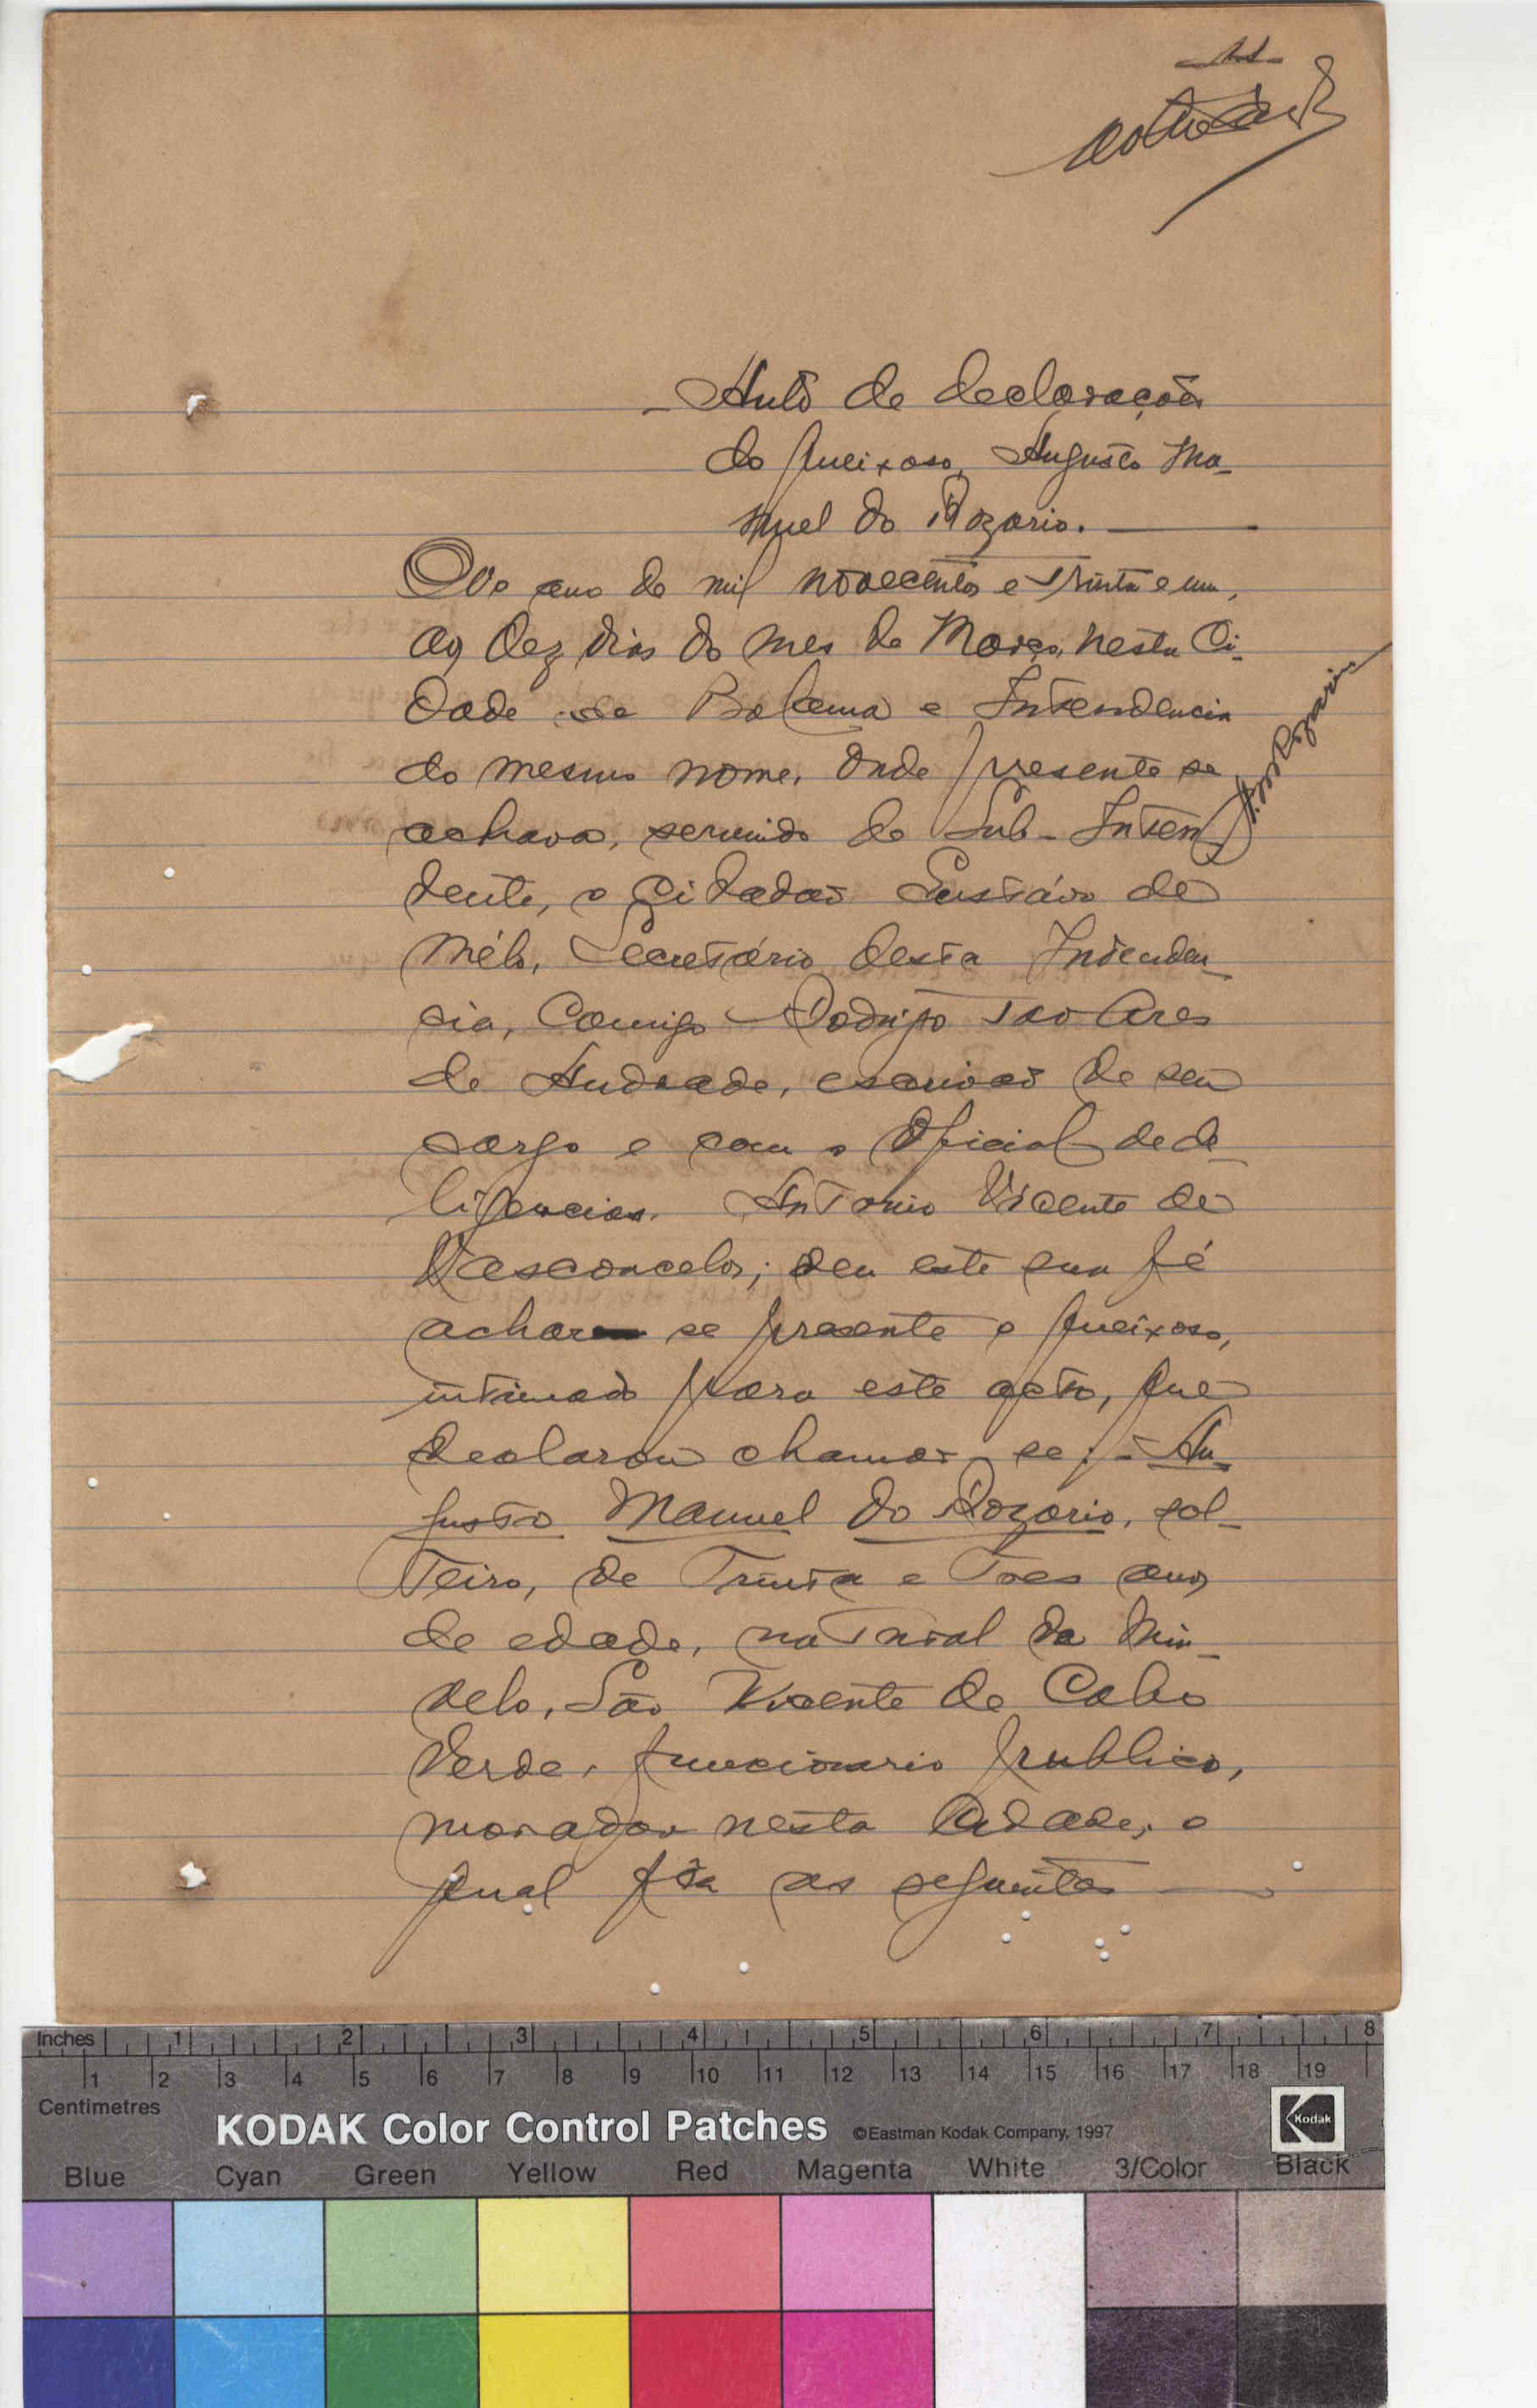 11
Auto de declaraçoẽs
do queixoso, Augusto Ma-
nuel do Rozario.
No ano de mil novecentos e trinta e um,
aos dez dias do mes de Março, nesta Ci-
dade de Bolama e Intendencia
do mesmo nome, onde presente se
achava, servindo de Sub-Inten-
dente, o Cidadaõ Gustávo de
Mélo, Secretário desta Intenden-
cia, comigo Rodrigo Tavares
de Andrade, escrivaõ de seu
cargo e com o Oficial de de-
ligencias. Antonio Vicente de
Vasconcelos; deu este sua fé
achar se presente o queixoso,
intimado para este acto, que
declarou chamar-se:- Au-
gusto Manuel do Rozario, sol-
teiro, de trinta e tres anos
de edade, natural da Min-
delo, São Vicente de Cabo
Verde, funcionario publico,
morador nesta Cidade, o
qual fôa as seguintes
A. M. Rozario
Inches 1 2 3 4 5 6 7 8
1 2 3 4 5 6 7 8 9 10 11 12 13 14 15 16 17 18 19
Centimetres
KODAK Color Control Patches ©Eastman Kodak Company, 1997 Kodak
Blue Cyan Green Yellow Red Magenta White 3/Color Black